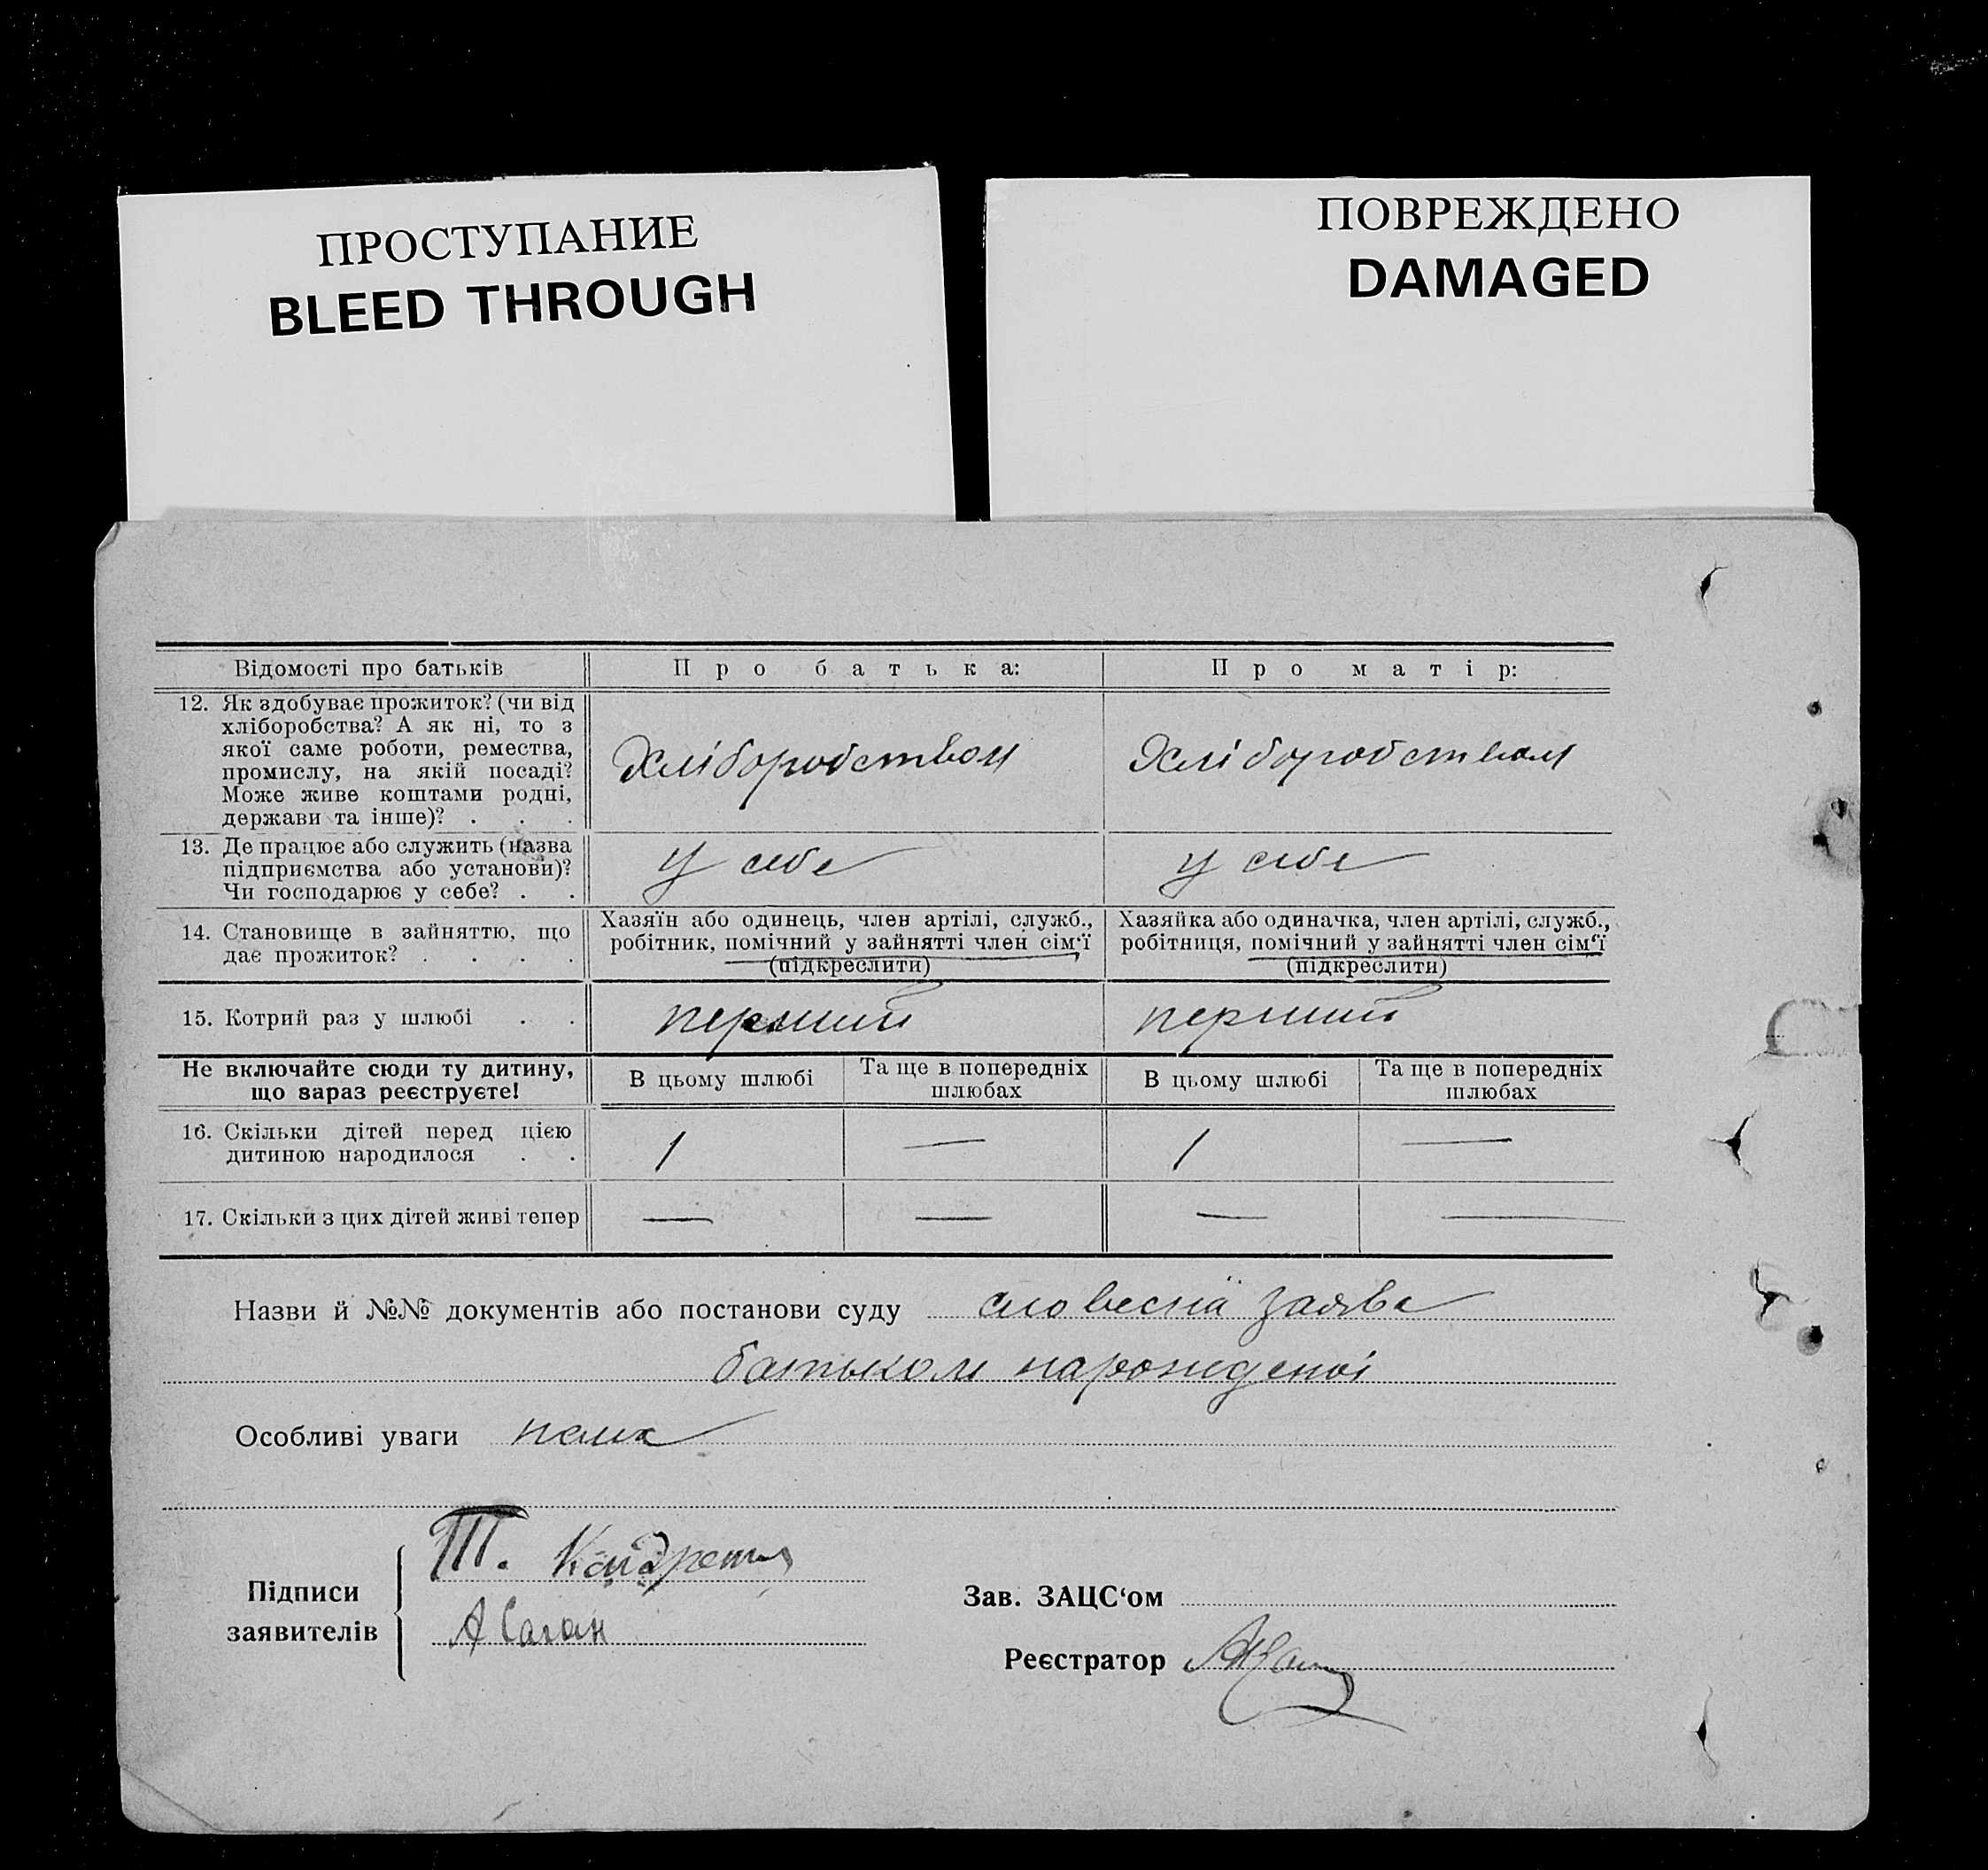 ПРОСТУПАНИЕ
BLEED THROUGH
ПОВРЕЖДЕНО
DAMAGED
Відомості про батьків
Про батька:
Про матір:
12. Як здобуває прожиток? (чи від
хліборобства? А як ні, то з
якої саме роботи, ремества,
промислу, на якій посаді?
Може живе коштами родні,
держави та інше)? . . .
Хліборобством
Хліборобством
13. Де працює або служить (назва
підприємства або установи)?
Чи господарює у себе? . .
у себе
у себе
14. Становище в зайняттю, що
дає прожиток? . . . .
Хазяїн або одинець, член артілі, служб.,
робітник, помічний у зайнятті член сім'ї
(підкреслити)
Хазяйка або одиначка, член артілі, служб.,
робітниця, помічний у зайнятті член сім'ї
(підкреслити)
15. Котрий раз у шлюбі . .
перший
перший
Не включайте сюди ту дитину,
що зараз реєструєте!
В цьому шлюбі
Та ще в попередніх
шлюбах
В цьому шлюбі
Та ще в попередніх
шлюбах
16. Скільки дітей перед цією
дитиною народилося . .
1
—
1
—
17. Скільки з цих дітей живі тепер
—
—
—
—
Назви й №№ документів або постанови суду словесна заява
батьком нарожденої
Особливі уваги нема
Підписи
заявителів
Т.
А Саган
Зав. ЗАЦС'ом
Реєстратор